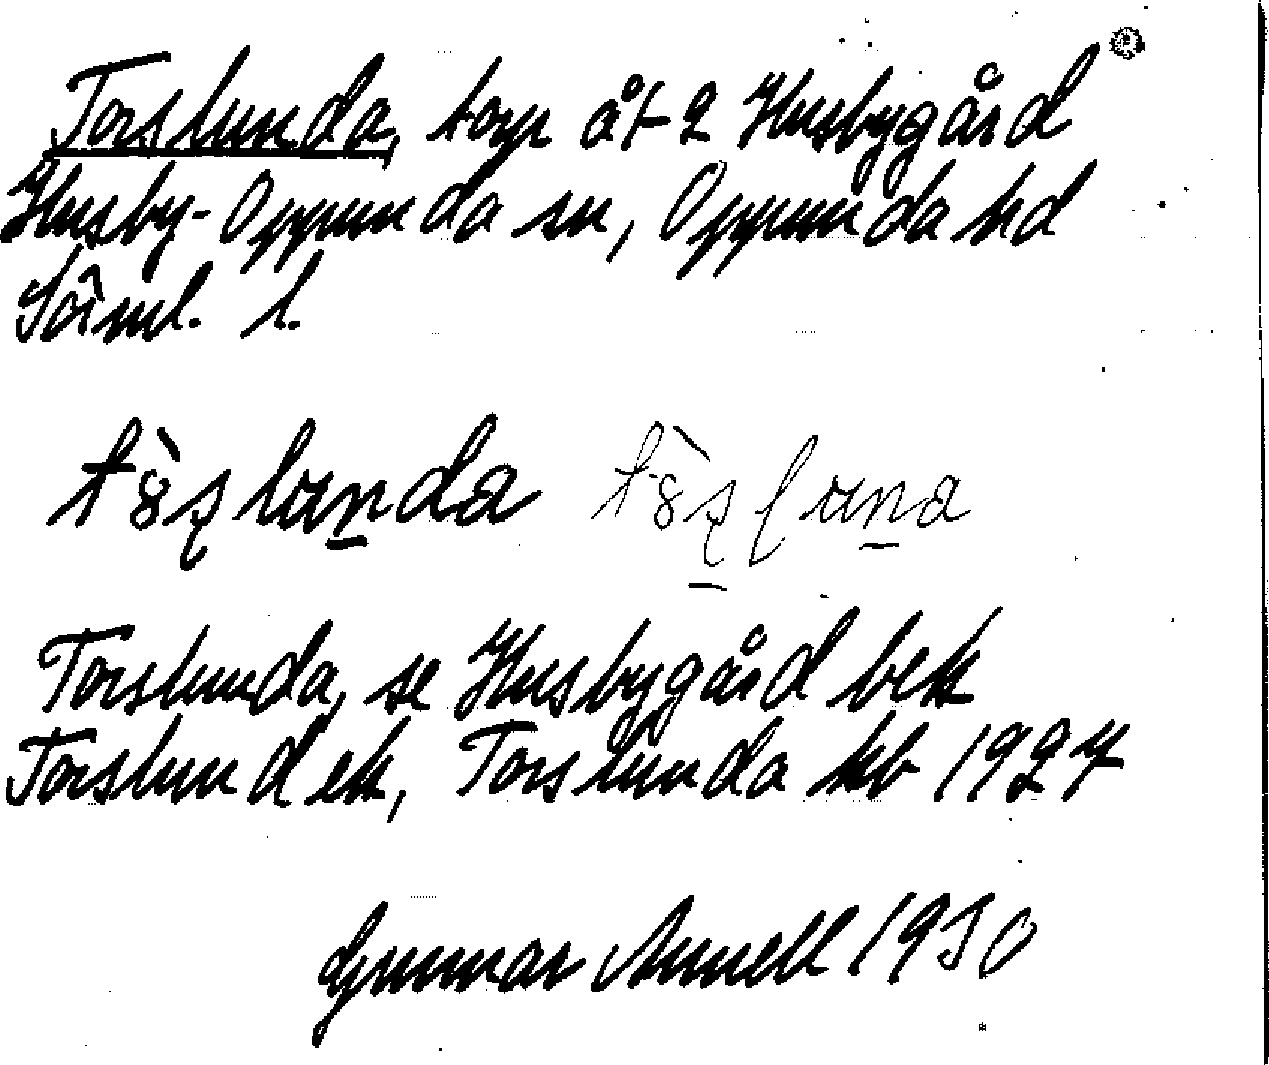 Torslunda, torp åt 2 Husbygård
Husby-Oppunda sn, Oppunda hd
Sörml. l.
Torslunda, se Husbygård bek
Torslund ek, Torslunda kb 1927
Gunnar Annell 1930